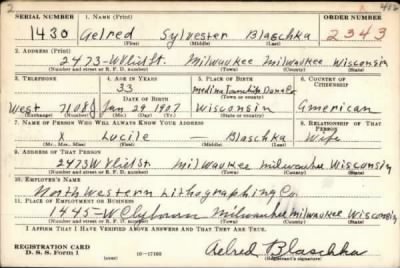 2 456
SERIAL NUMBER 1. NAME (Print) ORDER NUMBER
1430 Aelred Sylvester Blaschka 2343
(First) (Middle) (Last)
2. ADDRESS (Print)
2473-W Vliet St. Milwaukee Milwaukee Wisconsin
(Number and street or R. F. D. number) (Town) (County) (State)
3. TELEPHONE 4. AGE IN YEARS 5. PLACE OF BIRTH 6. COUNTRY OF CITIZENSHIP
33 Medina Township Dane Co.
DATE OF BIRTH
West 7108J Jan 29 1907 Wisconsin American
(Exchange) (Number) (Mo.) (Day) (Yr.) (State or country)
7. NAME OF PERSON WHO WILL ALWAYS KNOW YOUR ADDRESS 8. RELATIONSHIP OF THAT PERSON
X Lucile — Blaschka Wife
(Mr., Mrs., Miss) (First) (Middle) (Last)
9. ADDRESS OF THAT PERSON
2473 W Vliet St. Milwaukee Milwaukee Wisconsin
(Number and street or R. F. D. number) (Town) (County) (State)
10. EMPLOYER'S NAME
North Western Lithographing Co.
11. PLACE OF EMPLOYMENT OR BUSINESS
1445-W Clybourn Milwaukee Milwaukee Wisconsin
(Number and street or R. F. D. number) (Town) (County) (State)
I AFFIRM THAT I HAVE VERIFIED ABOVE ANSWERS AND THAT THEY ARE TRUE.
REGISTRATION CARD
D. S. S. Form 1 16—17105 Aelred Blaschka
(Registrant's signature)